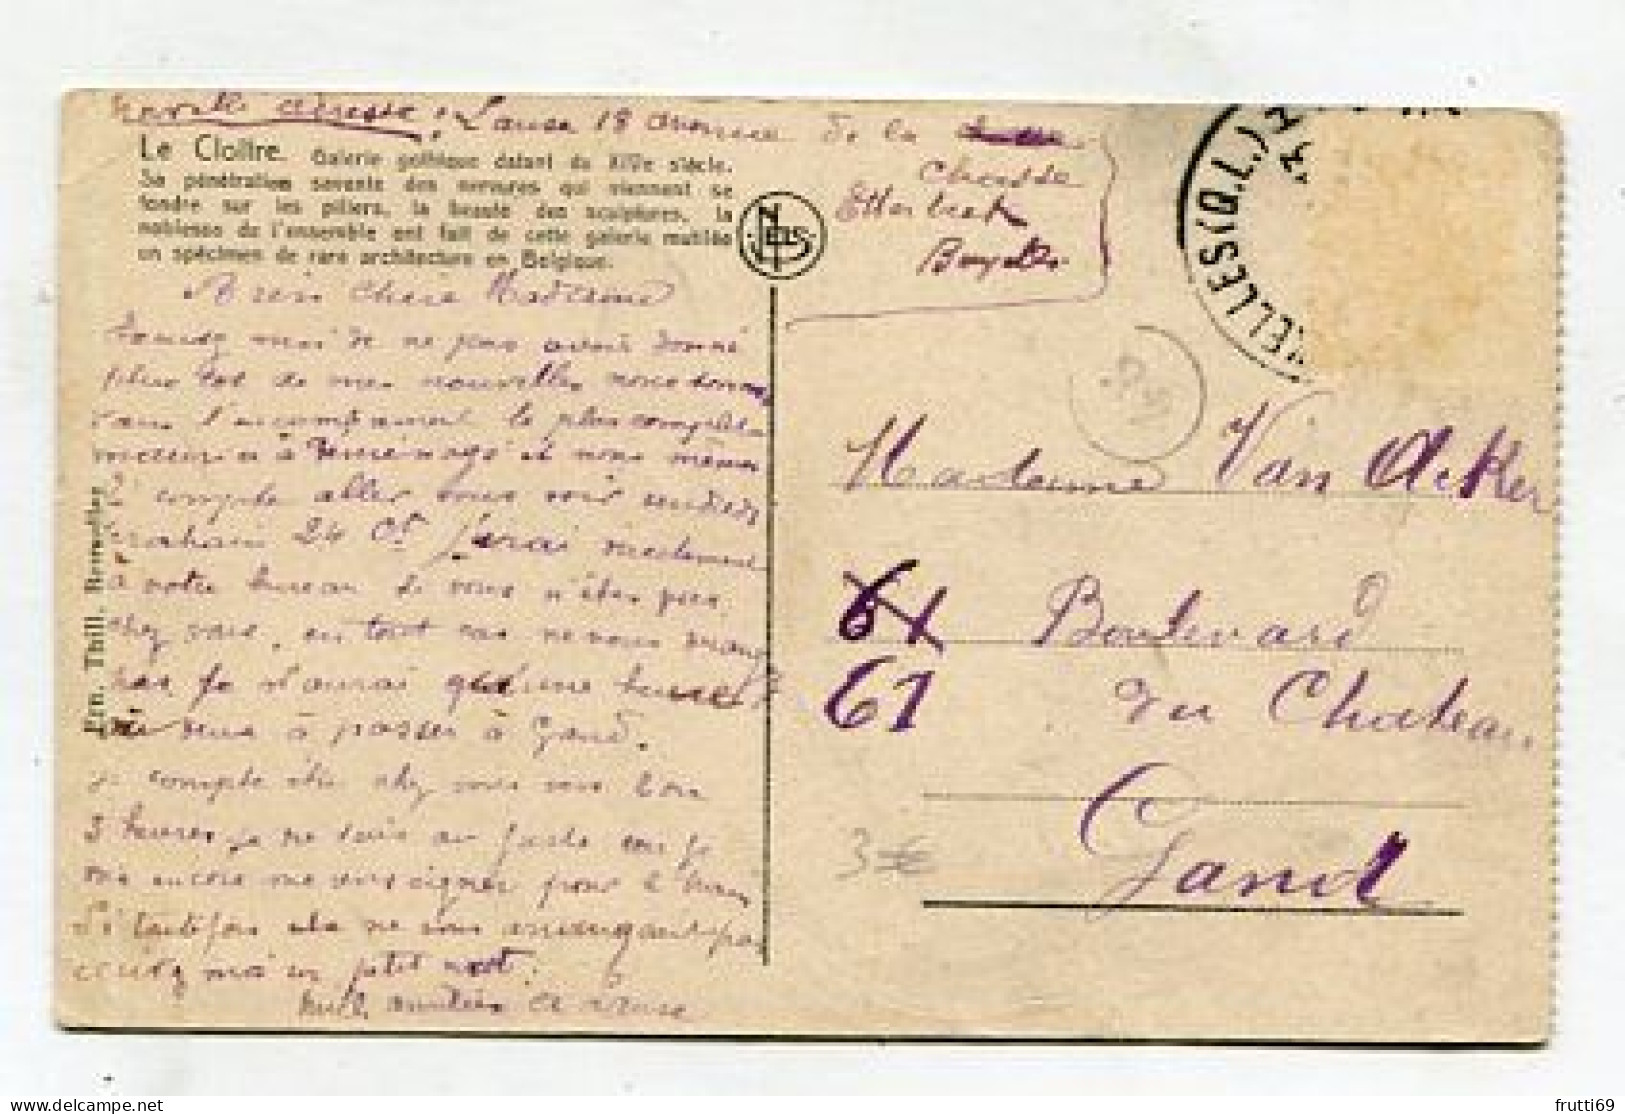 Nouvelle adresse : Lause 18 avenue de la
Chasse
Etterbeek
Le Cloître. Galerie gothique datant du XIVe siècle.
Sa pénétration savante des nervures qui viennent se
fondre sur les piliers, la beauté des sculptures, la
noblesse de l'ensemble ont fait de cette galerie mutilée
un spécimen de rare architecture en Belgique.
NELS
ELLES(Q.L.)
Bien chère Madame
moi de ne pas avoir donné
plus tot de mes nouvelles nous sommes
dans l'encombrement le plus complet
à déménagé et nous mêmes
compte aller vous voir vendredi
prochain 24 Ct j'irai directement
à votre bureau si vous n'êtes pas
chez vous, en tout cas ne vous
pas je n'aurai qu'une heure
à passer à Gand.
je compte être chez vous vers
3 heures je ne sais au juste car je
encore me renseigner pour le train
Si toutefois cela ne vous arrangeait pas
écrivez moi un petit mot.
Mille amitiés
Ern. Thill. Bruxelles
Madame Van Acker
61
61
Boulevard
du Chateau
Gand
3 €
frutti69